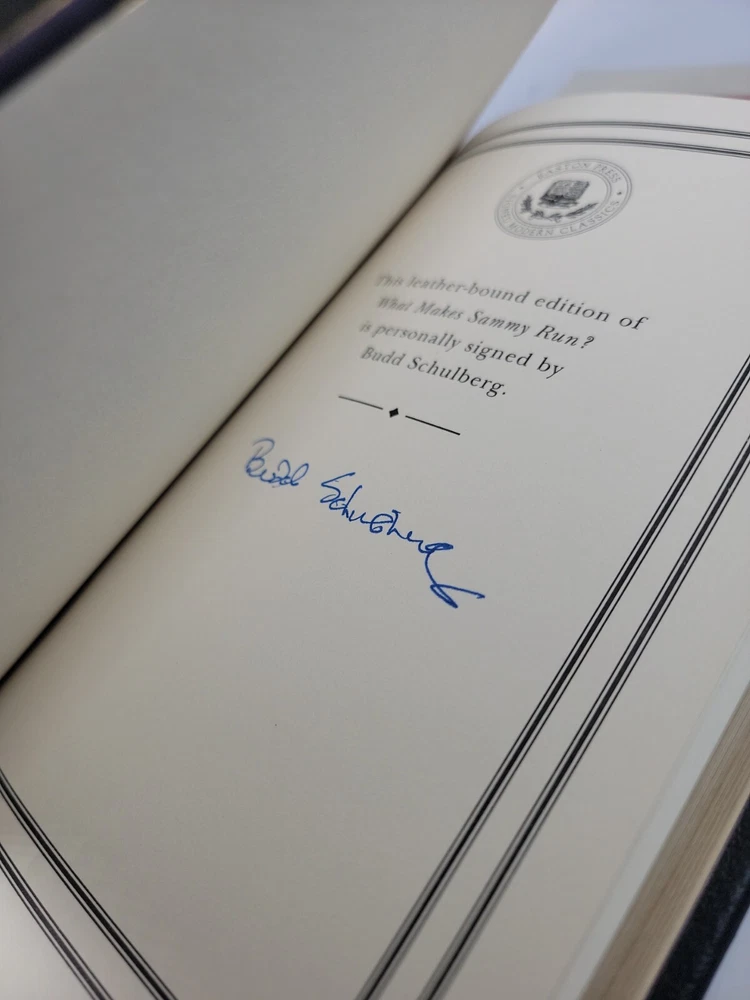 MODERN CLASSICS
This leather-bound edition of
What Makes Sammy Run?
is personally signed by
Budd Schulberg.
Budd Schulberg